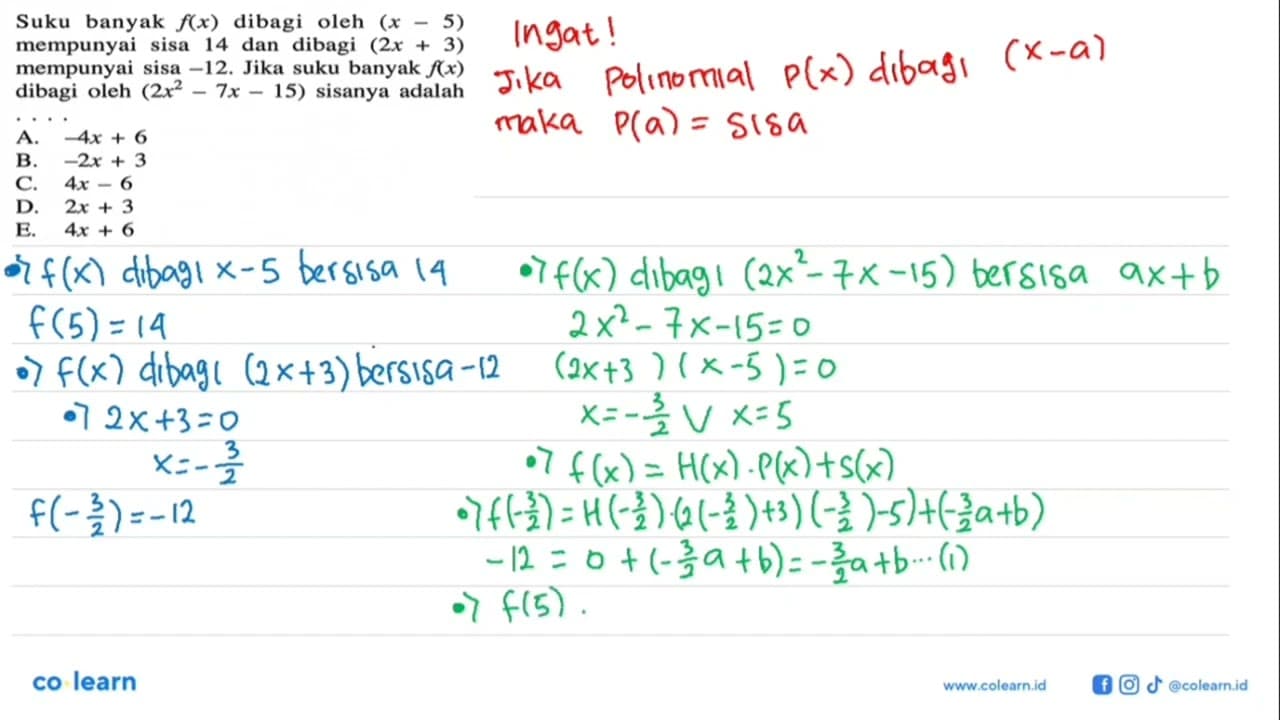 Suku banyak f(x) dibagi oleh (x − 5)
mempunyai sisa 14 dan dibagi (2x + 3)
mempunyai sisa −12. Jika suku banyak f(x)
dibagi oleh (2x² − 7x − 15) sisanya adalah
. . . .
A. −4x + 6
B. −2x + 3
C. 4x − 6
D. 2x + 3
E. 4x + 6
Ingat!
Jika Polinomial P(x) dibagi (x-a)
maka P(a) = sisa
•> f(x) dibagi x-5 bersisa 14
f(5) = 14
•> f(x) dibagi (2x+3) bersisa -12
•> 2x+3=0
x=-3/2
f(-3/2)=-12
•> f(x) dibagi (2x²-7x-15) bersisa ax+b
2x²-7x-15=0
(2x+3 ) ( x-5 )=0
x=-3/2 V x=5
•> f(x) = H(x).P(x)+S(x)
•> f(-3/2)=H(-3/2).(2(-3/2)+3)(-3/2)-5)+(-3/2a+b)
-12 = 0 + (-3/2a+b)=-3/2a+b...(1)
•> f(5) .
co learn
www.colearn.id
@colearn.id